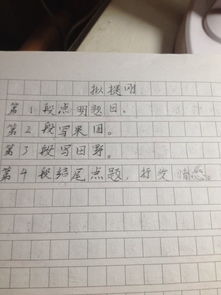 拟提纲
第1段点明题目。
第2段写果园。
第3段写田野。
第4段结尾点题，抒发情感。